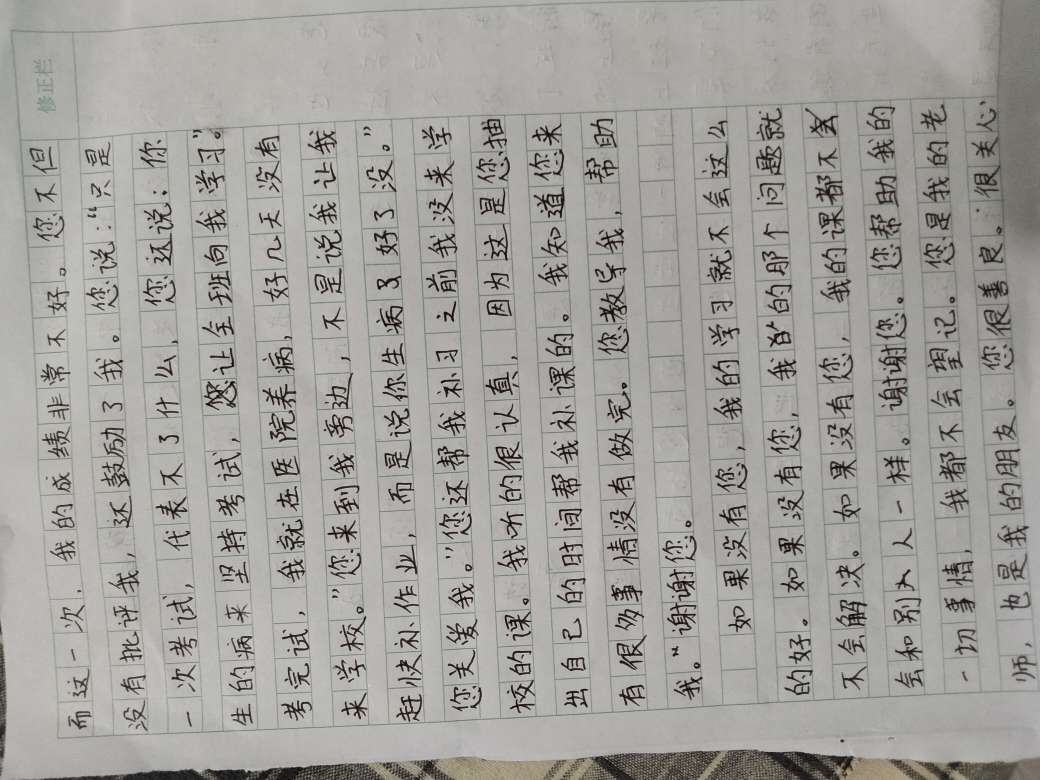 修正栏
而这一次，我的成绩非常不好。您不但
没有批评我，还鼓励了我。您说：“只是
一次考试，代表不了什么，您还说：你
生的病来坚持考试，您让全班向我学习。”
考完试，我就在医院养病，好几天没有
来学校。”您来到我旁边，不是说我让我
赶快补作业，而是说你生病了好了没。”
您关爱我。”您还帮我补习之前我没来学
校的课。我听的很认真，因为这是您抽
出自己的时间帮我补课的。我知道您来
有很多事情没有做完。您教导我，帮助
我。“谢谢您。
如果没有您，我的学习就不会这么
的好。如果没有您，我的那个问题就
不会解决。如果没有您，我的课都不会
会和别人一样。谢谢您。您帮助我的
一切事情，我都不会望记。您是我的老
师，也是我的朋友。您很善良。很关心